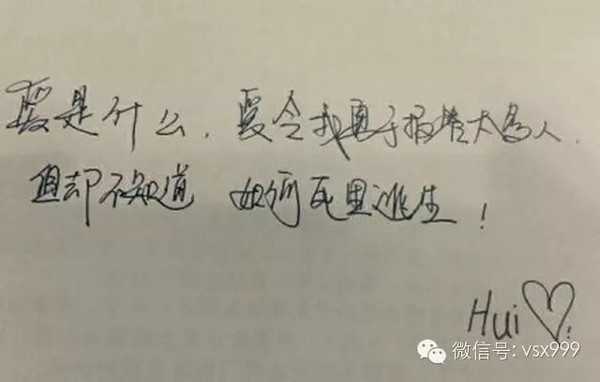 爱是什么，爱令我勇于报答大写人．
但却不知道 如何死里逃生！
Hui♡!
微信号: vsx999